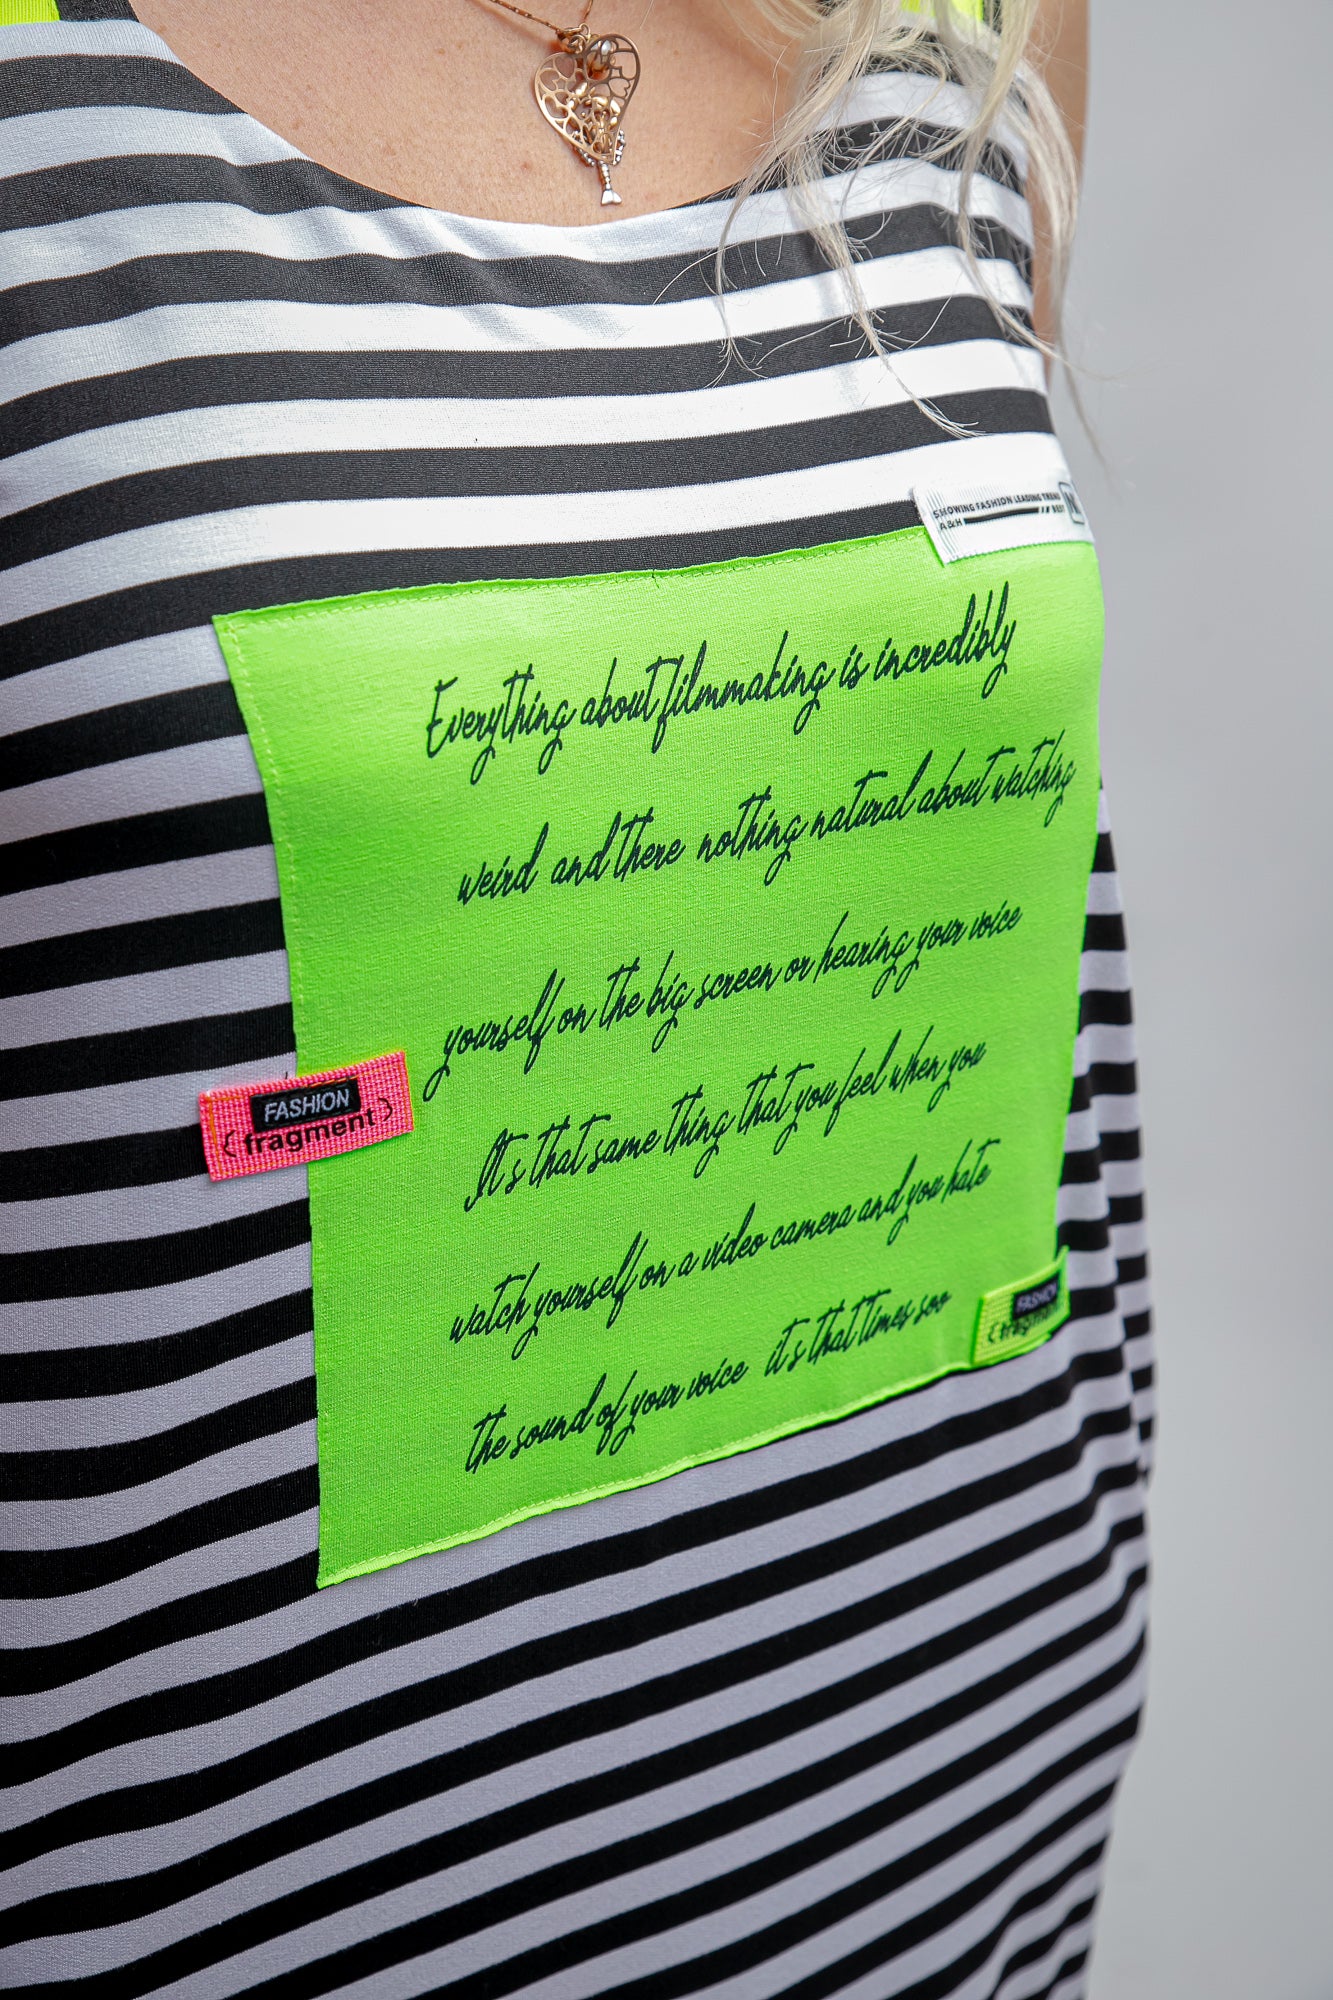 SHOWING FASHION LEADING TREND
A&H // BEST N
Everything about filmmaking is incredibly
weird and there nothing natural about watching
yourself on the big screen or hearing your voice
It s that same thing that you feel when you
watch yourself on a video camera and you hate
the sound of your voice it s that times soo
FASHION
fragment
FASHION
fragment